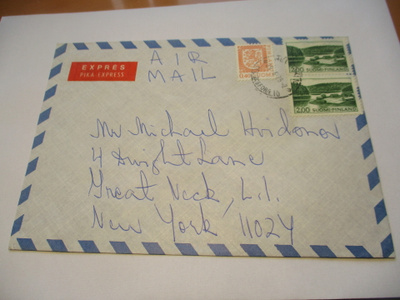 EXPRÈS
PIKA-EXPRESS
AIR
MAIL
2,00 SUOMI-FINLAND
2,00 SUOMI-FINLAND
Mr Michael
4 Dwight Lane
Great Neck, L.I.
New York 11024